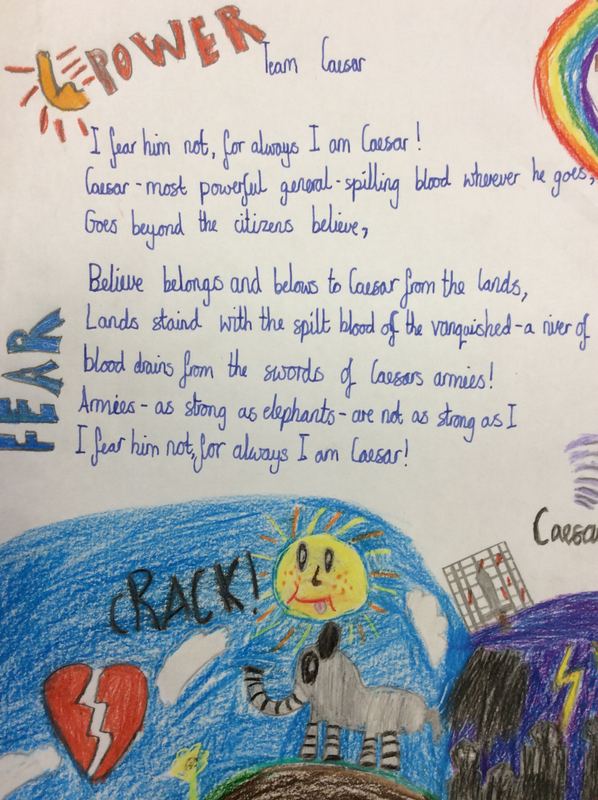 POWER
Team Caesar
I fear him not, for always I am Caesar!
Caesar - most powerful general - spilling blood wherever he goes,
Goes beyond the citizens believe,
Believe belongs and belows to Caesar from the lands,
Lands staind with the spilt blood of the vanquished - a river of
blood drains from the swords of Caesars armies!
Armies - as strong as elephants - are not as strong as I
I fear him not, for always I am Caesar!
FEAR
CRACK!